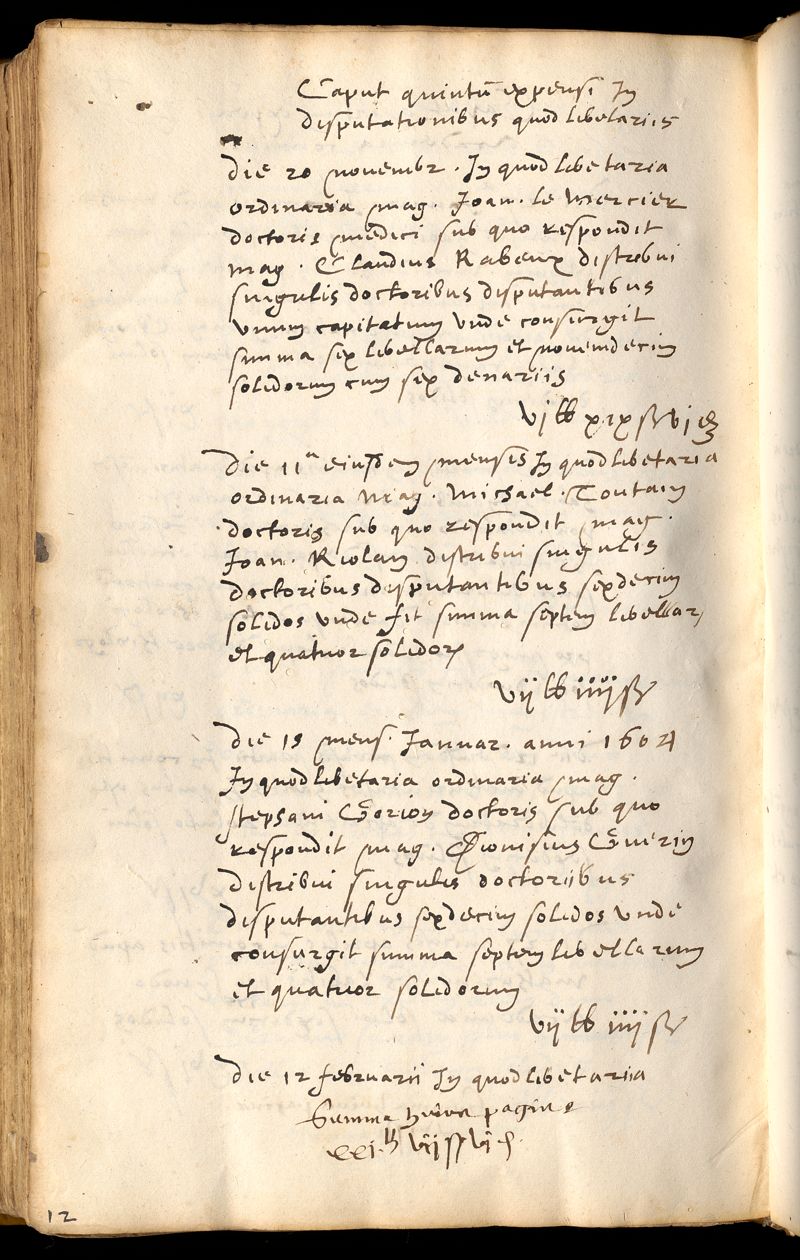 Caput quintū expensi In
disputationibus quodlibelariis
die 20 novembr. In quodlibetaria
ordinaria mag. Joan. le Mercier
doctoris medici sub quo respondit
mag. Claudius Rabeux distribui
singulis doctoribus disputantibus
unum capitatum unde consurgit
summa sex libellarum et novemdecim
solidorum cum sex denariis
vj lb xix ß vj d
die 11a eiusdem mensis In quodlibetaria
ordinaria mag. Michael. Toutain
doctoris sub quo respondit mag.
Joan. Riolan distribui singulis
doctoribus disputantibus sexdecim
solidos unde fit summa septem libellar
et quatuor solidor
vij lb iiij ß
die 15 mens. Januar. anni 1604
In quodlibetaria ordinaria mag.
stephani Gorion doctoris sub quo
respondit mag. Dionisius Guerin
distribui singulis doctoriibus
disputantibus sexdecim solidos unde
consurgit summa septem libellarum
et quatuor solidorum
vij lb iiij ß
die 12 februarii In quodlibetariia
Summa huius paginæ
xxi lb vij ß vj d
12